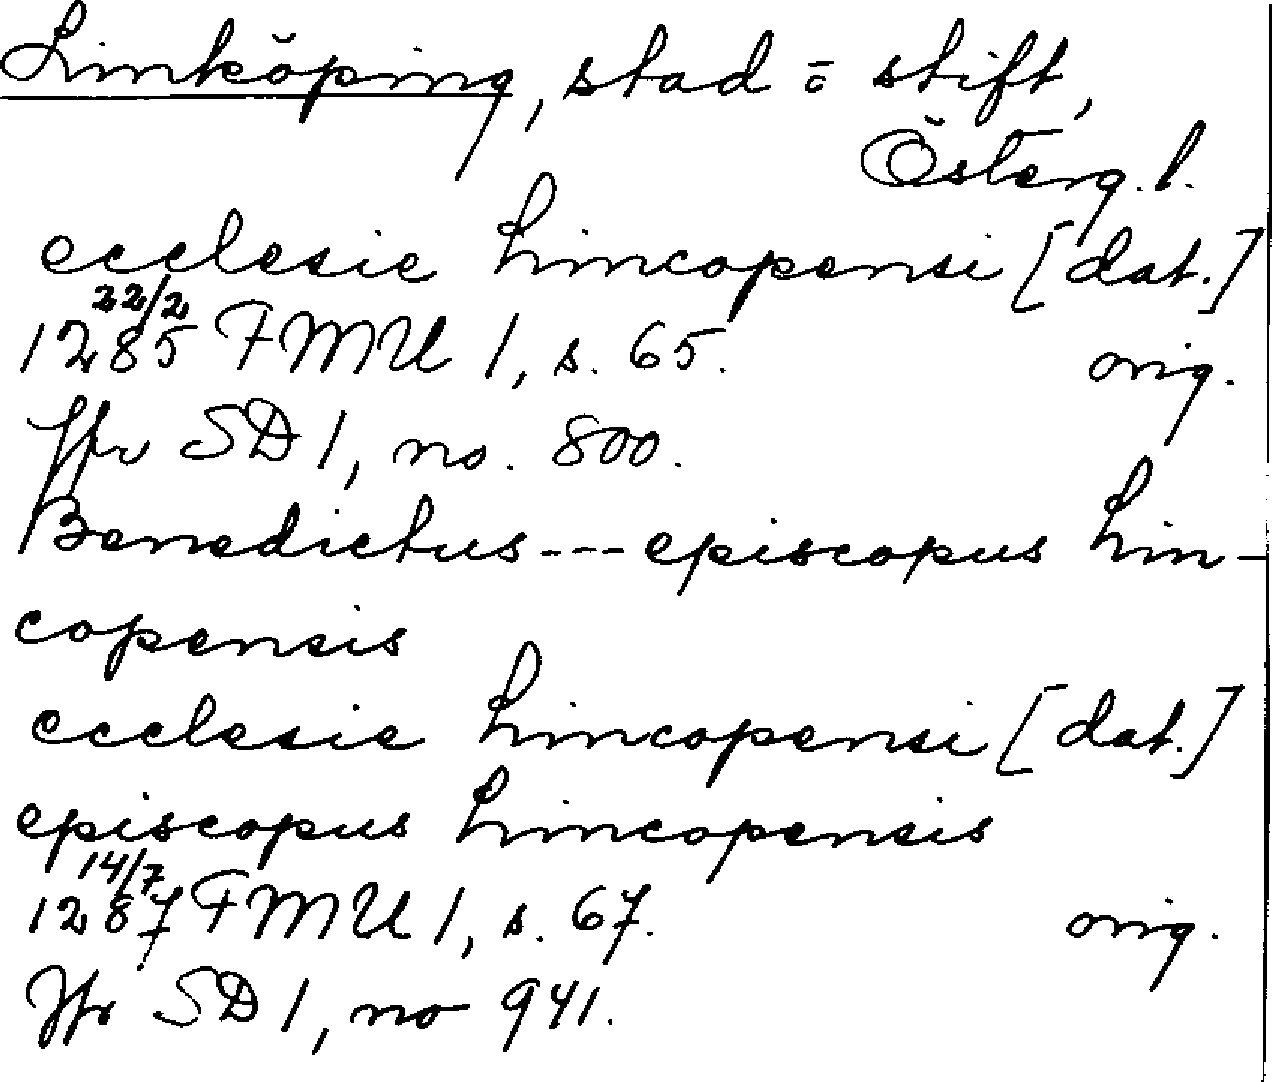 Linköping, stad o stift,
Österg. l.
ecclesie Lincopensi [dat.]
22/2
1285 FMU 1, s. 65. orig.
Jfr SD 1, no. 800.
Benedictus --- episcopus Lin-
copensis
ecclesie Lincopensi [dat.]
episcopus Lincopensis
14/7
1287 FMU 1, s. 67. orig.
Jfr SD 1, no 941.